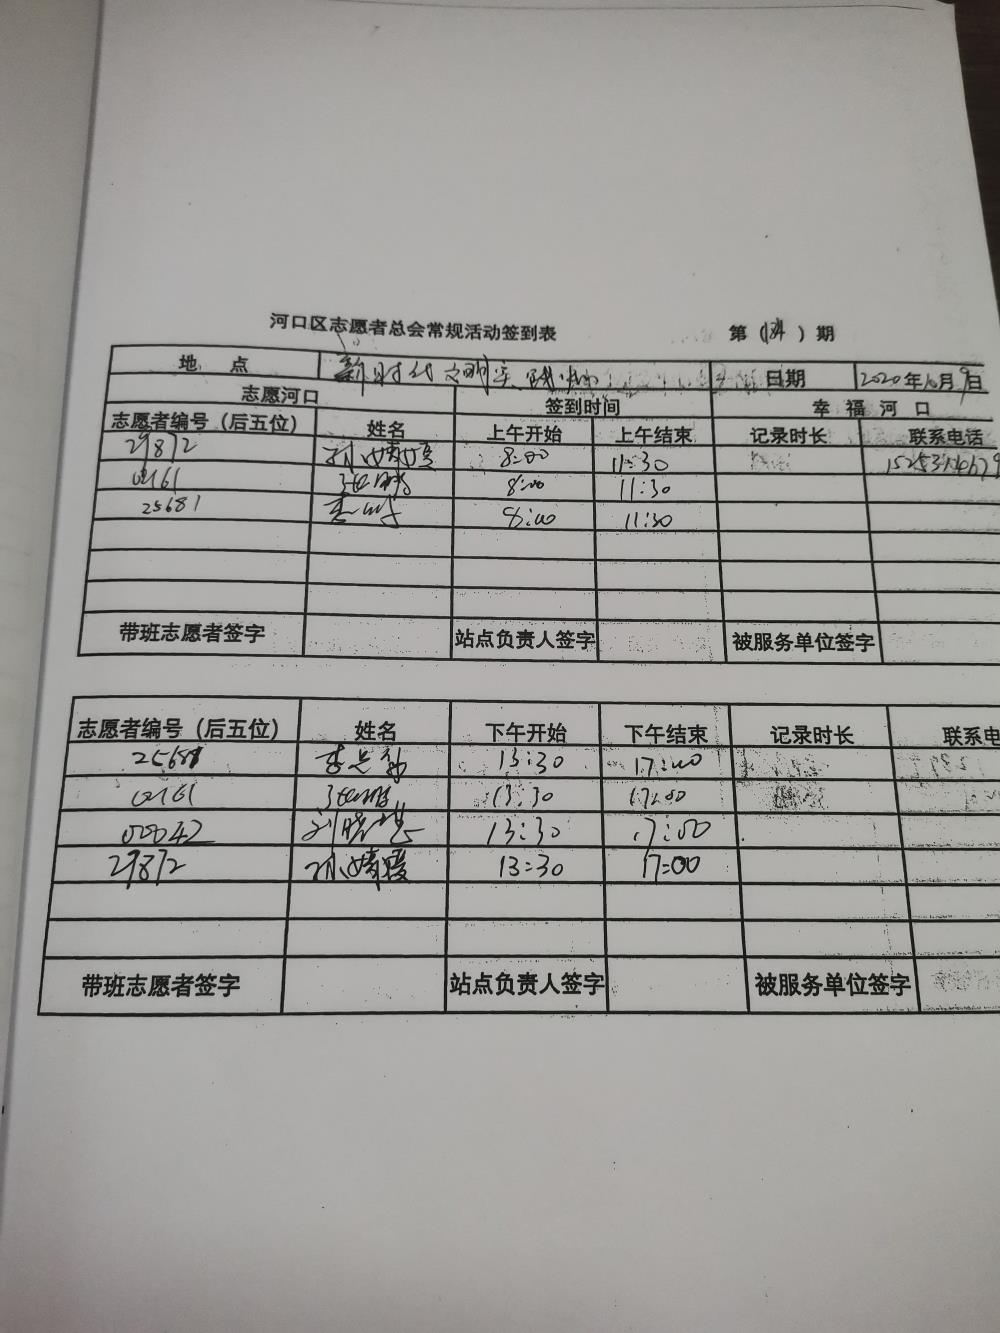 河口区志愿者总会常规活动签到表 第( )期
地 点 新时代文明实践 日期 2020年10月9日
志愿河口 签到时间 幸 福 河 口
志愿者编号（后五位） 姓名 上午开始 上午结束 记录时长 联系电话
29872 8:00 11:30
00161 8:00 11:30
25681 8:00 11:30
带班志愿者签字 站点负责人签字 被服务单位签字
志愿者编号（后五位） 姓名 下午开始 下午结束 记录时长 联系电
25681 13:30 17:00
00161 13:30 17:00
00042 刘晓 13:30 17:00
29872 13:30 17:00
带班志愿者签字 站点负责人签字 被服务单位签字